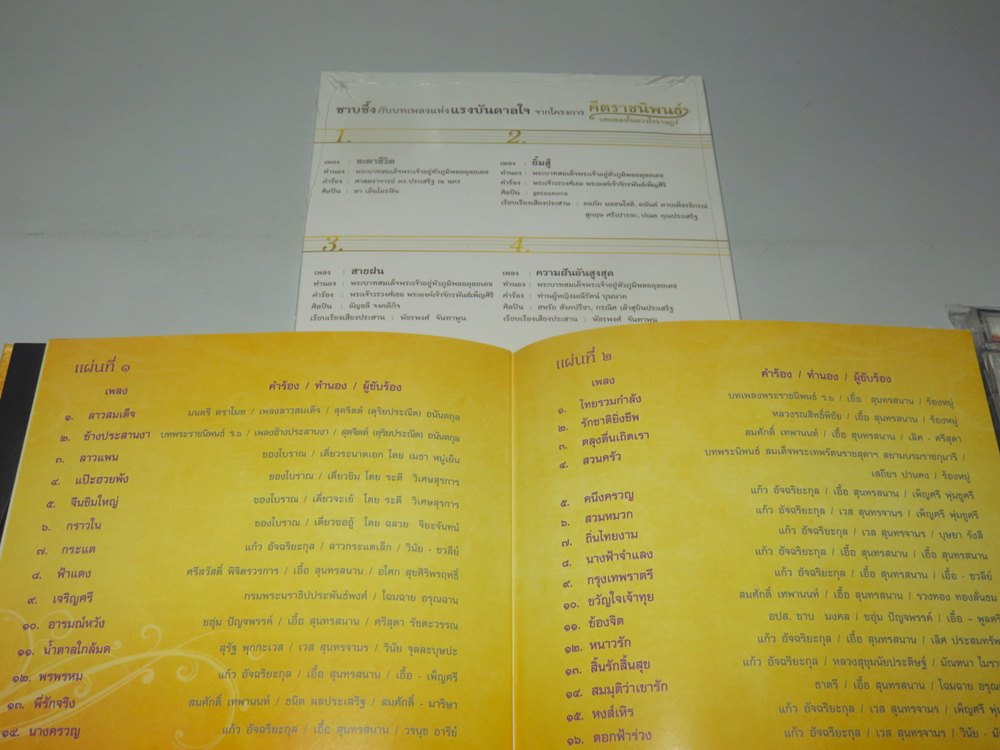 ซาบซึ้ง กับบทเพลงแห่ง แรงบันดาลใจ จากโครงการ คีตราชนิพนธ์
บทเพลงในดวงใจราษฎร์
1.
เพลง : ชะตาชีวิต
ทำนอง : พระบาทสมเด็จพระเจ้าอยู่หัวภูมิพลอดุลยเดช
คำร้อง : ศาสตราจารย์ ดร.ประเสริฐ ณ นคร
ศิลปิน : ดา เอ็นโดรฟิน
2.
เพลง : ยิ้มสู้
ทำนอง : พระบาทสมเด็จพระเจ้าอยู่หัวภูมิพลอดุลยเดช
คำร้อง : พระเจ้าวรวงศ์เธอ พระองค์เจ้าจักรพันธ์เพ็ญศิริ
ศิลปิน : getsunova
เรียบเรียงเสียงประสาน :
3.
เพลง : สายฝน
ทำนอง : พระบาทสมเด็จพระเจ้าอยู่หัวภูมิพลอดุลยเดช
คำร้อง : พระเจ้าวรวงศ์เธอ พระองค์เจ้าจักรพันธ์เพ็ญศิริ
ศิลปิน : อัญชลี จงคดีกิจ
เรียบเรียงเสียงประสาน : พัชรพงศ์ จันทาพูน
4.
เพลง : ความฝันอันสูงสุด
ทำนอง : พระบาทสมเด็จพระเจ้าอยู่หัวภูมิพลอดุลยเดช
คำร้อง : ท่านผู้หญิงมณีรัตน์ บุนนาค
ศิลปิน : สหรัถ สังคปรีชา, กรณิศ เล้าสุบินประเสริฐ
เรียบเรียงเสียงประสาน : พัชรพงศ์ จันทาพูน
แผ่นที่ ๑
เพลง คำร้อง / ทำนอง / ผู้ขับร้อง
๑. ลาวสมเด็จ มนตรี ตราโมท / เพลงลาวสมเด็จ / สุดจิตต์ (ดุริยประณีต) อนันตกุล
๒. ช้างประสานงา บทพระราชนิพนธ์ ร.๖ / เพลงช้างประสานงา / สุดจิตต์ (ดุริยประณีต) อนันตกุล
๓. ลาวแพน ของโบราณ / เดี่ยวระนาดเอก โดย เมธา หมู่เย็น
๔. แป๊ะฮวยพัง ของโบราณ / เดี่ยวขิม โดย ระดี วิเศษสุรการ
๕. จีนขิมใหญ่ ของโบราณ / เดี่ยวจะเข้ โดย ระดี วิเศษสุรการ
๖. กราวใน ของโบราณ / เดี่ยวซออู้ โดย ฉลวย จิยะจันทน์
๗. กระแต แก้ว อัจฉริยะกุล / ลาวกระแตเล็ก / วินัย - ชวลีย์
๘. ฟ้าแดง ศรีสวัสดิ์ พิจิตรวรการ / เอื้อ สุนทรสนาน / อโศก สุขศิริพรฤทธิ์
๙. เจริญศรี กรมพระนราธิปประพันธ์พงศ์ / โฉมฉาย อรุณฉาน
๑๐. อารมณ์หวัง ชอุ่ม ปัญจพรรค์ / เอื้อ สุนทรสนาน / ศรีสุดา รัชตะวรรณ
๑๑. น้ำตาลใกล้มด สุรัฐ พุกกะเวส / เวส สุนทรจามร / วินัย จุลละบุษปะ
๑๒. พรพรหม แก้ว อัจฉริยะกุล / เอื้อ สุนทรสนาน / เอื้อ - เพ็ญศรี
๑๓. พี่รักจริง สมศักดิ์ เทพานนท์ / ธนิต ผลประเสริฐ / สมศักดิ์ - มาริษา
๑๔. นางครวญ แก้ว อัจฉริยะกุล / เอื้อ สุนทรสนาน / วรนุช อารีย์
แผ่นที่ ๒
เพลง คำร้อง / ทำนอง / ผู้ขับร้อง
๑. ไทยรวมกำลัง บทเพลงพระราชนิพนธ์ ร.๖ / เอื้อ สุนทรสนาน / ร้องหมู่
๒. รักชาติยิ่งชีพ หลวงรณสิทธิ์พิชัย / เอื้อ สุนทรสนาน / ร้องหมู่
๓. ตลุงตื่นเถิดเรา สมศักดิ์ เทพานนท์ / เอื้อ สุนทรสนาน / เลิศ - ศรีสุดา
๔. สวนครัว บทพระนิพนธ์ สมเด็จพระเทพรัตนราชสุดาฯ สยามบรมราชกุมารี /
เสถียร ปานคง / ร้องหมู่
๕. คนึงครวญ แก้ว อัจฉริยะกุล / เอื้อ สุนทรสนาน / เพ็ญศรี พุ่มชูศรี
๖. สวมหมวก แก้ว อัจฉริยะกุล / เวส สุนทรจามร / เพ็ญศรี พุ่มชูศรี
๗. ถิ่นไทยงาม แก้ว อัจฉริยะกุล / เวส สุนทรจามร / บุษยา รังสี
๘. นางฟ้าจำแลง แก้ว อัจฉริยะกุล / เอื้อ สุนทรสนาน / เอื้อ สุนทรสนาน
๙. กรุงเทพราตรี แก้ว อัจฉริยะกุล / เอื้อ สุนทรสนาน / เอื้อ - ชวลีย์
๑๐. ขวัญใจเจ้าทุย สมศักดิ์ เทพานนท์ / เอื้อ สุนทรสนาน / รวงทอง ทองลั่นธม
๑๑. ข้องจิต อปส. ขาบ มงคล / ชอุ่ม ปัญจพรรค์ / เอื้อ - พูลศรี
๑๒. หนาวรัก แก้ว อัจฉริยะกุล / เอื้อ สุนทรสนาน / เลิศ ประสมทรัพ
๑๓. สิ้นรักสิ้นสุข แก้ว อัจฉริยะกุล / หลวงสุขุมนัยประดิษฐ์ / มัณฑนา โมรา
๑๔. สมมุติว่าเขารัก ธาตรี / เอื้อ สุนทรสนาน / โฉมฉาย อรุณ
๑๕. หงส์เหิร แก้ว อัจฉริยะกุล / เอื้อ สุนทรสนาน / เพ็ญศรี พุ่
๑๖. ดอกฟ้าร่วง แก้ว อัจฉริยะกุล / เวส สุนทรจามร / วินัย -